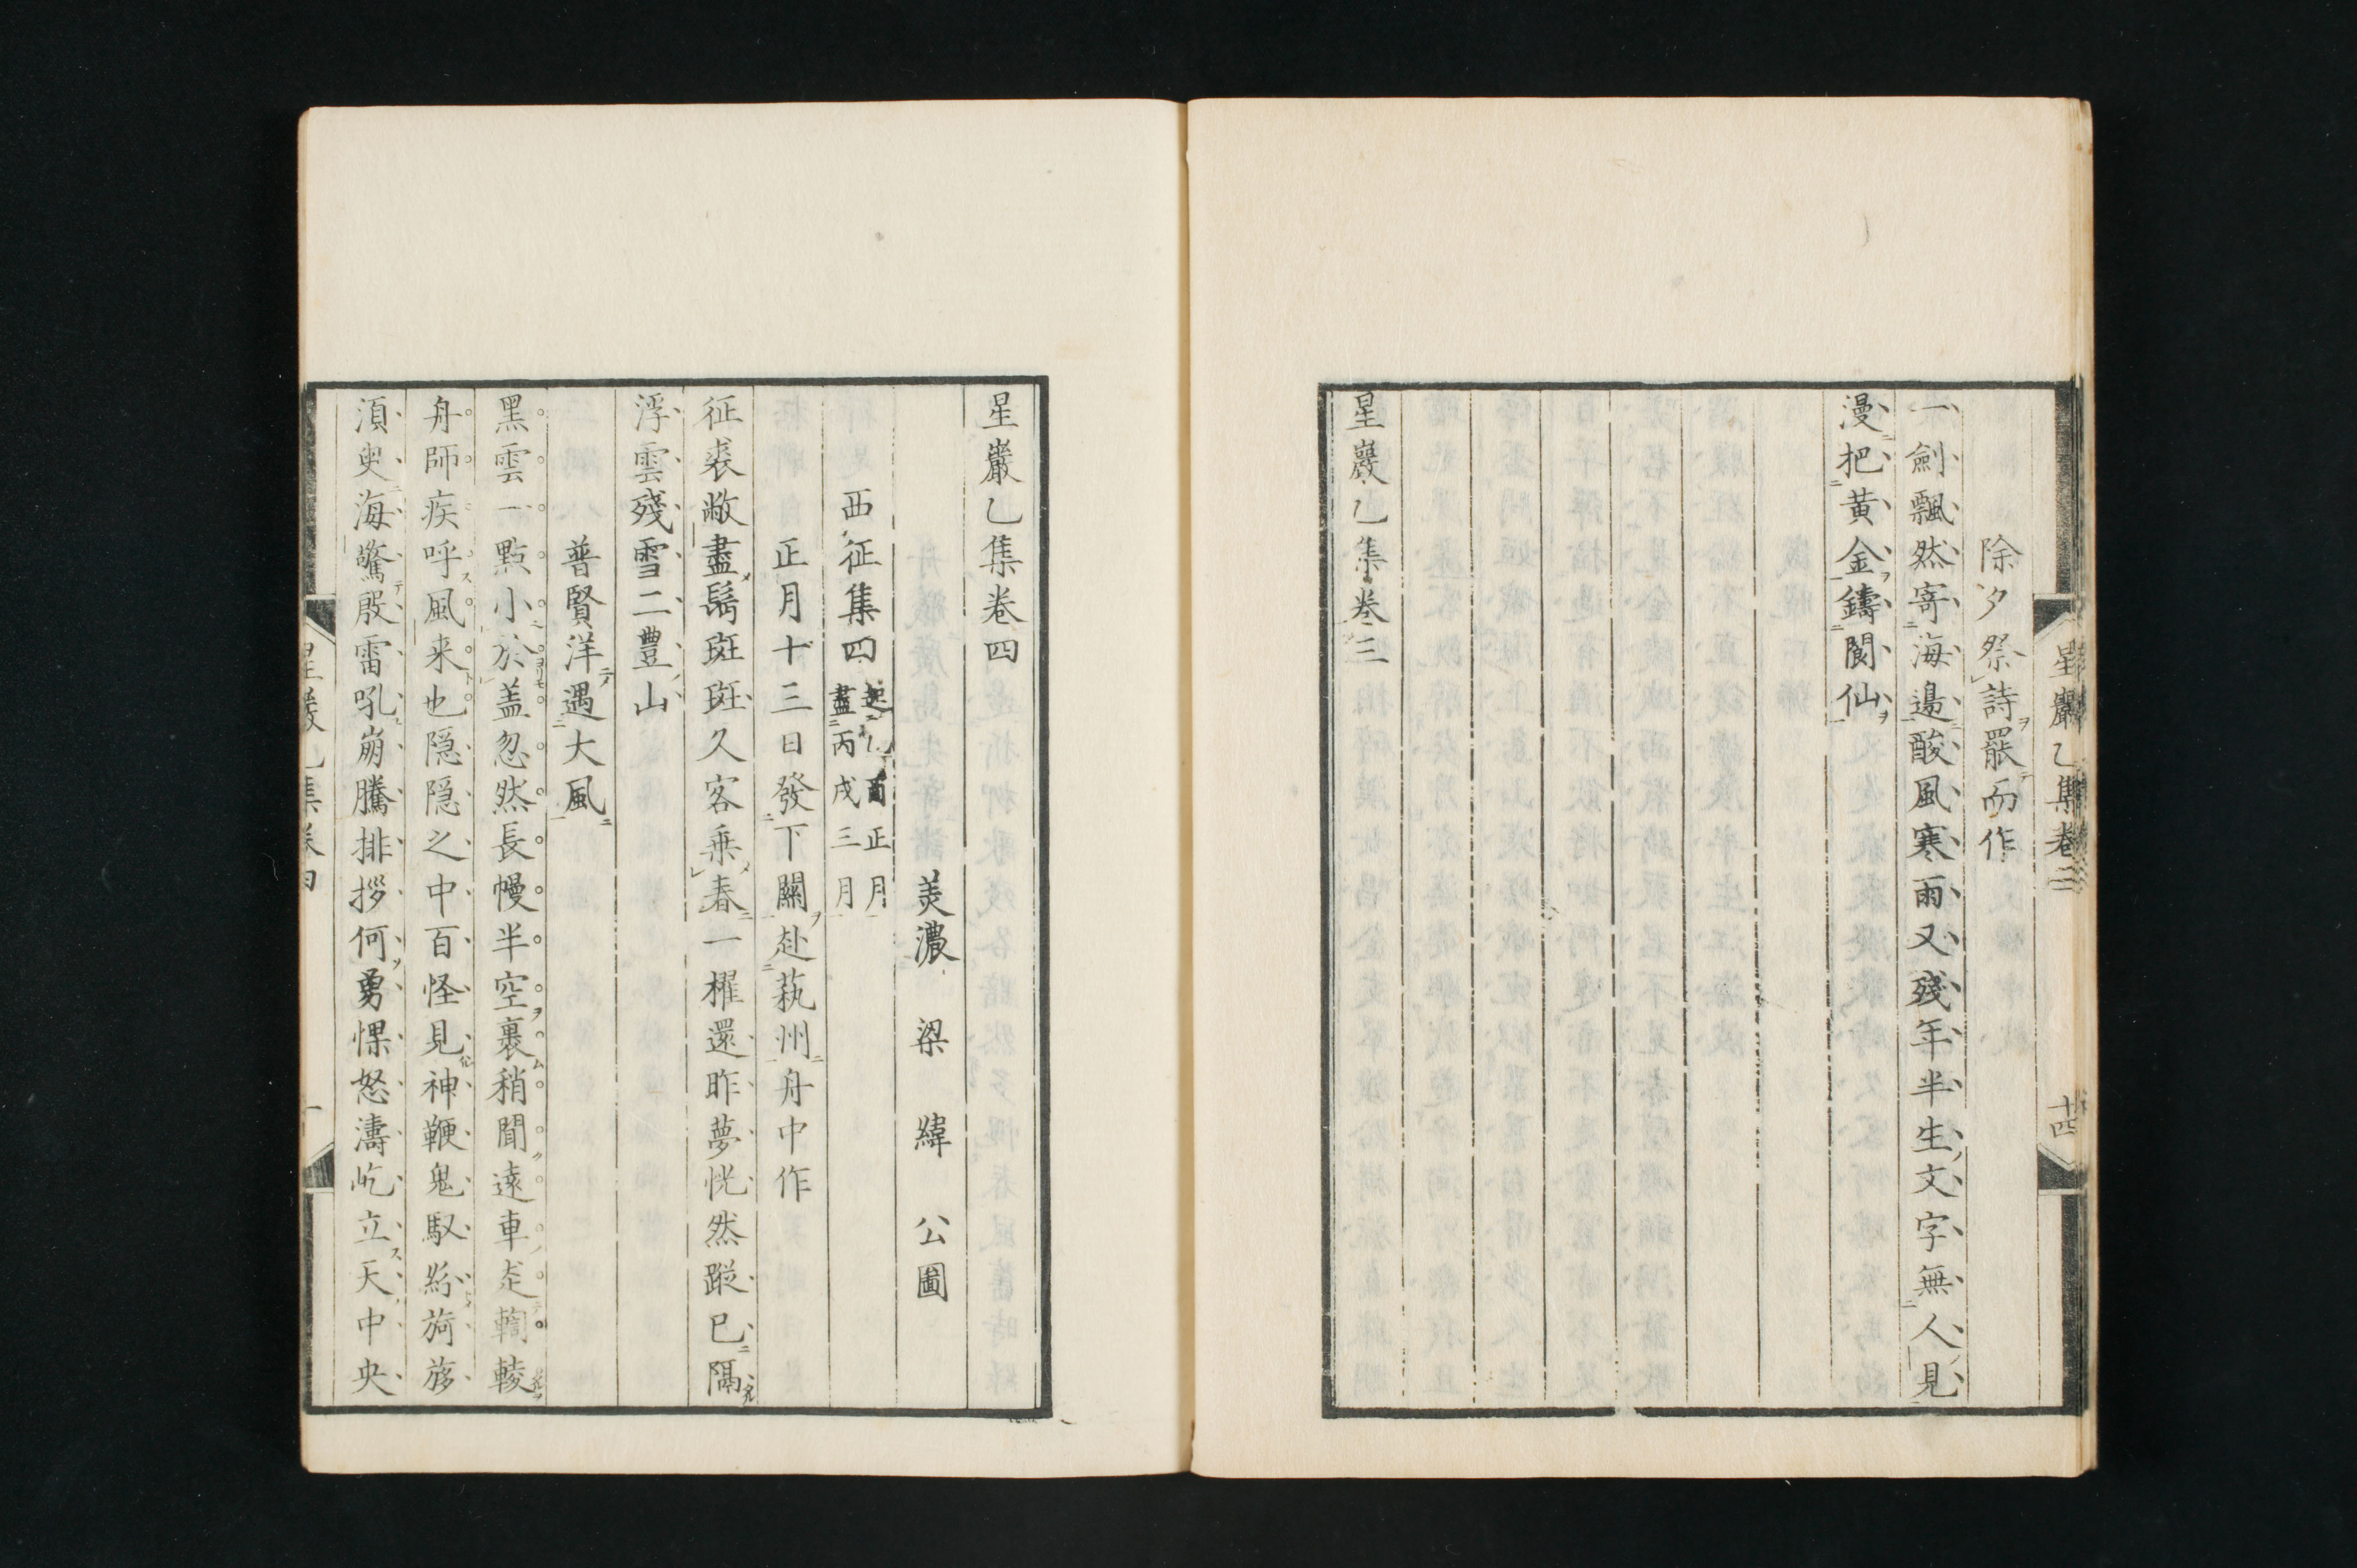 星巖乙集卷三
十四
除夕祭詩罷而作
一劍飄然寄海邊酸風寒雨又殘年半生文字無人見
漫把黃金鑄閬仙
星巖乙集卷三
星巖乙集卷四
美濃 梁 緯 公圖
西征集四 起乙酉正月
盡丙戌三月
正月十三日發下關赴萩州舟中作
征裘敝盡鬋斑斑久客乗春一櫂還昨夢恍然蹤已隔
浮雲殘雪二豊山
普賢洋遇大風
黑雲一點小於盖忽然長幔半空裏稍聞遠車走輷輘
舟師疾呼風来也隠隠之中百怪見神鞭鬼馭紛旖旎
須臾海驚殷雷吼崩騰排拶何勇惈怒濤屹立天中央
星巖乙集卷四
一